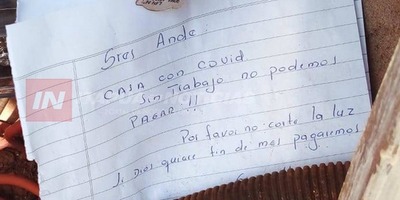 Sres Ande:
CASA con covid
sin Trabajo no podemos
PAGAR !!
Por favor no corte la luz
Si Dios quiere fin de mes pagaremos
IN